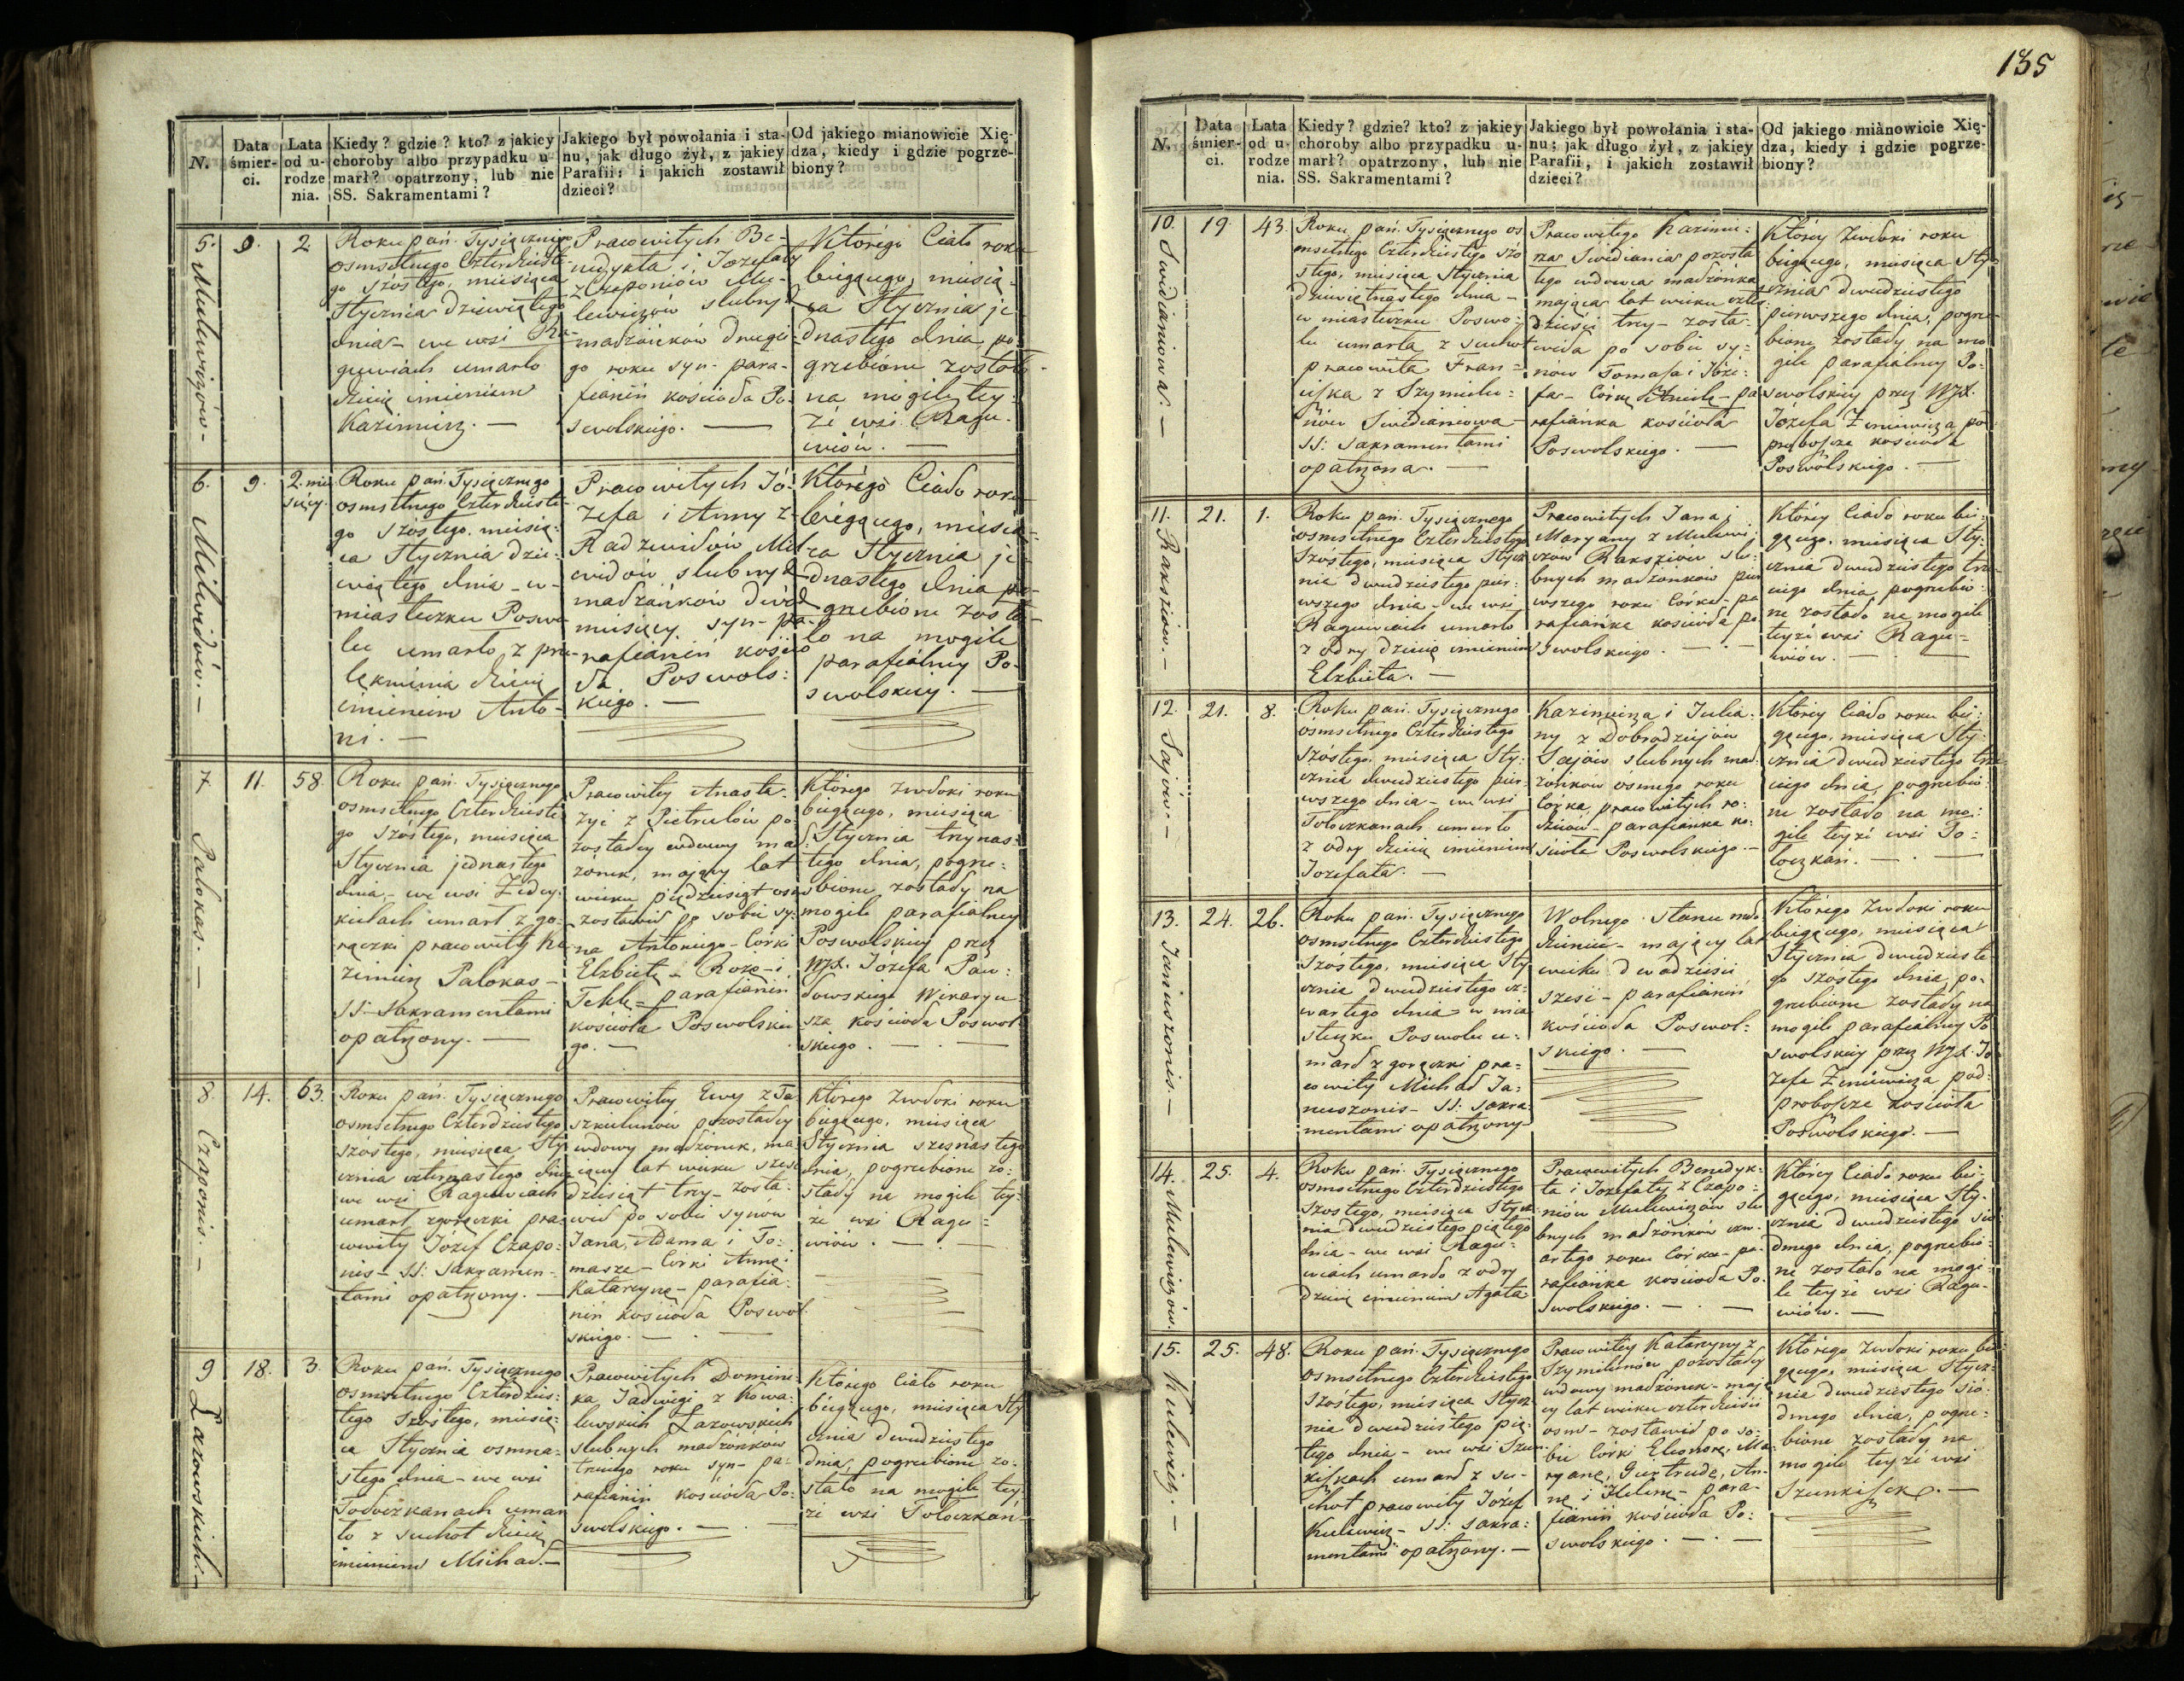 135
N.
Data śmierci.
Lata od urodzenia.
Kiedy? gdzie? kto? z jakiey
choroby albo przypadku u-
marł? opatrzony, lub nie
SS. Sakramentami?
Jakiego był powołania i sta-
nu, jak długo żył, z jakiey
Parafii: i jakich zostawił
dzieci?
Od jakiego mianowicie Xię-
dza, kiedy i gdzie pogrze-
biony?
5.
Mulewiczów –
9.
2
Roku pań. Tysiącznego
osmsetnego Czterdzieste-
go szóstego, miesiąca
Stycznia dziewiątego
dnia – we wsi Ra-
guwiach umarło
dziecię imieniem
Kazimierz. –
Pracowitych Be-
nedykta i Jozefaty
z Czeponiów Mu-
lewiczów slubnych
madżónków drugie-
go roku syn – para-
fianin kościoła Po-
swolskiego. –
Którego Ciało roku
bieącego, miesią-
ca Stycznia je-
dnastego dnia, po-
grzebione zostało
na mogile tey-
że wsi Ragu-
wiów. –
6.
Milwidów. –
9.
2. mie
sięcy.
Roku pań. Tysiącznego
osmsetnego Czterdzieste-
go szóstego, miesią-
ca Stycznia dzie-
wiątego dnia – w
miasteczku Poswo-
lu umarło, z prze-
lęknienia dziecię
imieniem Anto-
ni. –
Pracowitych Jó-
zefa i Anny z
Radzwidów Mil-
widów slubnych
madżónków dwóch
miesięcy syn – pa-
rafianin kościo-
ła Poswols:
kiego. –
Którego Ciało roku
bieżącego, miesią-
ca Stycznia je-
dnastego dnia po-
grzebione zosta-
ło na mogile
parafialney Po-
swolskiey. –
7
Palokas. –
11.
58.
Roku pań. Tysiącznego
osmsetnego Czterdzieste-
go szóstego, miesiąca
Stycznia jednastego
dnia – we wsi Zidey-
kielach umarł z go-
rączki pracowity Ka-
zimierz Palokas –
SS: Sakramentami
opatrzony. –
Pracowitey Anasta-
zyi z Pietrulów po-
zostałey wdowy mad-
żónek, mający lat
wieku piędziesiąt osm
zostawił po sobie sy-
na Antoniego – Córki
Elzbietę – Rozę – i
Teklę – parafianin
kościoła Poswolskie-
go. –
Którego zwłoki roku
bieżącego, miesiąca
Stycznia trzynas-
tego dnia, pogrze-
bione zostały na
mogile parafialney
Poswolskiey przez
WJX. Józefa Paw-
łowskiego Wikaryu-
sza kościoła Poswol-
skiego. –
8.
Czaponis. –
14.
63.
Roku pań. Tysiącznego
osmsetnego Czterdziestego
szóstego, miesiąca Sty-
cznia czternastego dnia
we wsi Raguwiach
umarł z gorączki pra-
cowity Józef Czapo-
nis – SS: Sakramen-
tami opatrzony. –
Pracowitey Ewy z Ta-
szkielunów pozostałey
wdowy madżónek, ma-
jący lat wieku szesć
dziesiąt trzy – zosta-
wił po sobie synów
Jana, Adama i To-
masza – Córki Annę i
Katarzynę – parafia-
nin kościoła Poswol-
skiego. –
Którego zwłoki roku
bieżącego, miesiąca
Stycznia szesnastego
dnia, pogrzebione zo-
stały na mogile tey-
że wsi Ragu-
wiów. –
9
Łazowskich. –
18.
3.
Roku pań. Tysiącznego
osmsetnego Czterdzies-
tego szóstego, miesią-
ca Stycznia osmna-
stego dnia – we wsi
Tołoczkanach umar-
ło z suchot dziecię
imieniem Michał. –
Pracowitych Domini-
ka Jadwigi z Kowa-
lewskich Łazowskich
slubnych madżónków
trzeciego roku syn – pa-
rafianin kościoła Po-
swolskiego. –
Którego Ciało roku
bieżącego, miesiąca Sty-
cznia dwudziestego
dnia, pogrzebione zo-
stało na mogile tey-
że wsi Tołoczkań
N.
Data śmierci.
Lata od urodzenia.
Kiedy? gdzie? kto? z jakiey
choroby albo przypadku u-
marł? opatrzony, lub nie
SS. Sakramentami?
Jakiego był powołania i sta-
nu; jak długo żył, z jakiey
Parafii, i jakich zostawił
dzieci?
Od jakiego mianowicie Xię-
dza, kiedy i gdzie pogrze-
biony?
10.
Swidianiowa. –
19.
43.
Roku pań. Tysiącznego os-
msetnego Czterdziestego szó-
stego, miesiąca Stycznia
dziewiętnastego dnia –
w miasteczku Poswo-
lu umarła z suchot
pracowita Fran-
ciszka z Szymielu-
nów Swidianiowa –
SS: Sakramentami
opatrzona. –
Pracowitego Kazimie-
rza Swidiania pozosta-
łego wdowca madżónka
mająca lat wieku czter-
dzieści trzy – zosta-
wiła po sobie sy-
nów Tomasza i Józe-
fa – Córkę Anielę – pa-
rafianka kościoła
Poswolskiego. –
Którey Zwłoki roku
bieżącego, miesiąca Sty-
cznia dwudziestego
pierwszego dnia, pogrze-
bione zostały na mo-
gile parafialney Po-
swolskiey przez WJX.
Józefa Zeniewicza pod-
proboszcza kościoła
Poswolskiego. –
11.
Rakszów. –
21.
1.
Roku pań. Tysiącznego
osmsetnego Czterdziestego
szóstego, miesiąca Stycz-
nia dwudziestego pier-
wszego dnia – we wsi
Raguwiach umarło
z odry dziecię imieniem
Elzbieta. –
Pracowitych Jana i
Maryany z Mulewi-
czów Rakszów slu-
bnych madżónków pier-
wszego roku Córka – pa-
rafianka kościoła Po-
swolskiego. –
Którey Ciało roku bie-
żącego, miesiąca Sty-
cznia dwudziestego trze-
ciego dnia, pogrzebio-
ne zostało na mogile
teyże wsi Ragu-
wiów. –
12.
Sajów. –
21.
8.
Roku pań. Tysiącznego
osmsetnego Czterdziestego
szóstego, miesiąca Sty-
cznia dwudziestego pier-
wszego dnia – we wsi
Tołoczkanach umarło
z odry dziecię imieniem
Jozefata. –
Kazimierza i Julia-
ny z Dobrodziejów
Sajów slubnych mad-
żónków ósmego roku
Córka, pracowitych ro-
dziców – parafianka ko-
ścioła Poswolskiego. –
Którey Ciało roku bie-
żącego, miesiąca Sty-
cznia dwudziestego trze-
ciego dnia, pogrzebio-
ne zostało na mo-
gile teyże wsi To-
łoczkań. –
13.
Januszonis. –
24.
26.
Roku pań. Tysiącznego
osmsetnego Czterdziestego
szóstego, miesiąca Sty-
cznia dwudziestego cz-
wartego dnia w mia-
steczku Poswolu u-
marł z gorączki pra-
cowity Michał Ja-
nuszonis – SS: Sakra-
mentami opatrzony
Wolnego stanu mło-
dzieniec – mający lat
wieku dwadzieścia
szesć – parafianin
kościoła Poswol-
skiego. –
Którego Zwłoki roku
bieżącego, miesiąca
Stycznia dwudzieste-
go szóstego dnia, po-
grzebione zostały na
mogile parafialney Po-
swolskiey przez WJX. Jó-
zefa Zeniewicza pod-
proboszcza kościoła
Poswolskiego. –
14.
Mulewiczów.
25.
4.
Roku pań. Tysiącznego
osmsetnego Czterdziestego
szóstego, miesiąca Stycz-
nia dwudziestego piątego
dnia – we wsi Ragu-
wiach umarło z odry
dziecię imieniem Agata
Pracowitych Benedyk-
ta i Jozefaty z Czapo-
niów Mulewiczów slu-
bnych madżónków czw-
artego roku Córka – pa-
rafianka kościoła Po-
swolskiego. –
Którey Ciało roku bie-
żącego, miesiąca Sty-
cznia dwudziestego sió-
dmego dnia, pogrzebio-
ne zostało na mogi-
le teyże wsi Ragu-
wiów. –
15.
Kulewicz. –
25.
48.
Roku pań. Tysiącznego
osmsetnego Czterdziestego
szóstego, miesiąca Stycz-
nia dwudziestego pią-
tego dnia – we wsi Szun-
kiszkach umarł z su-
chot pracowity Józef
Kulewicz – SS: Sakra-
mentami opatrzony. –
Pracowitey Katarzyny z
Szymilunów pozostałey
wdowy madżónek – mają-
cy lat wieku czterdzieści
osm – zostawił po so-
bie Córki Eleonorę, Ma-
ryanę, Giertrudę, An-
nę i Helenę – para-
fianin kościoła Po-
swolskiego. –
Którego Zwłoki roku bie-
żącego, miesiąca Stycz-
nia dwudziestego sió-
dmego dnia, pogrze-
bione zostały na
mogile teyże wsi
Szunkiszek. –